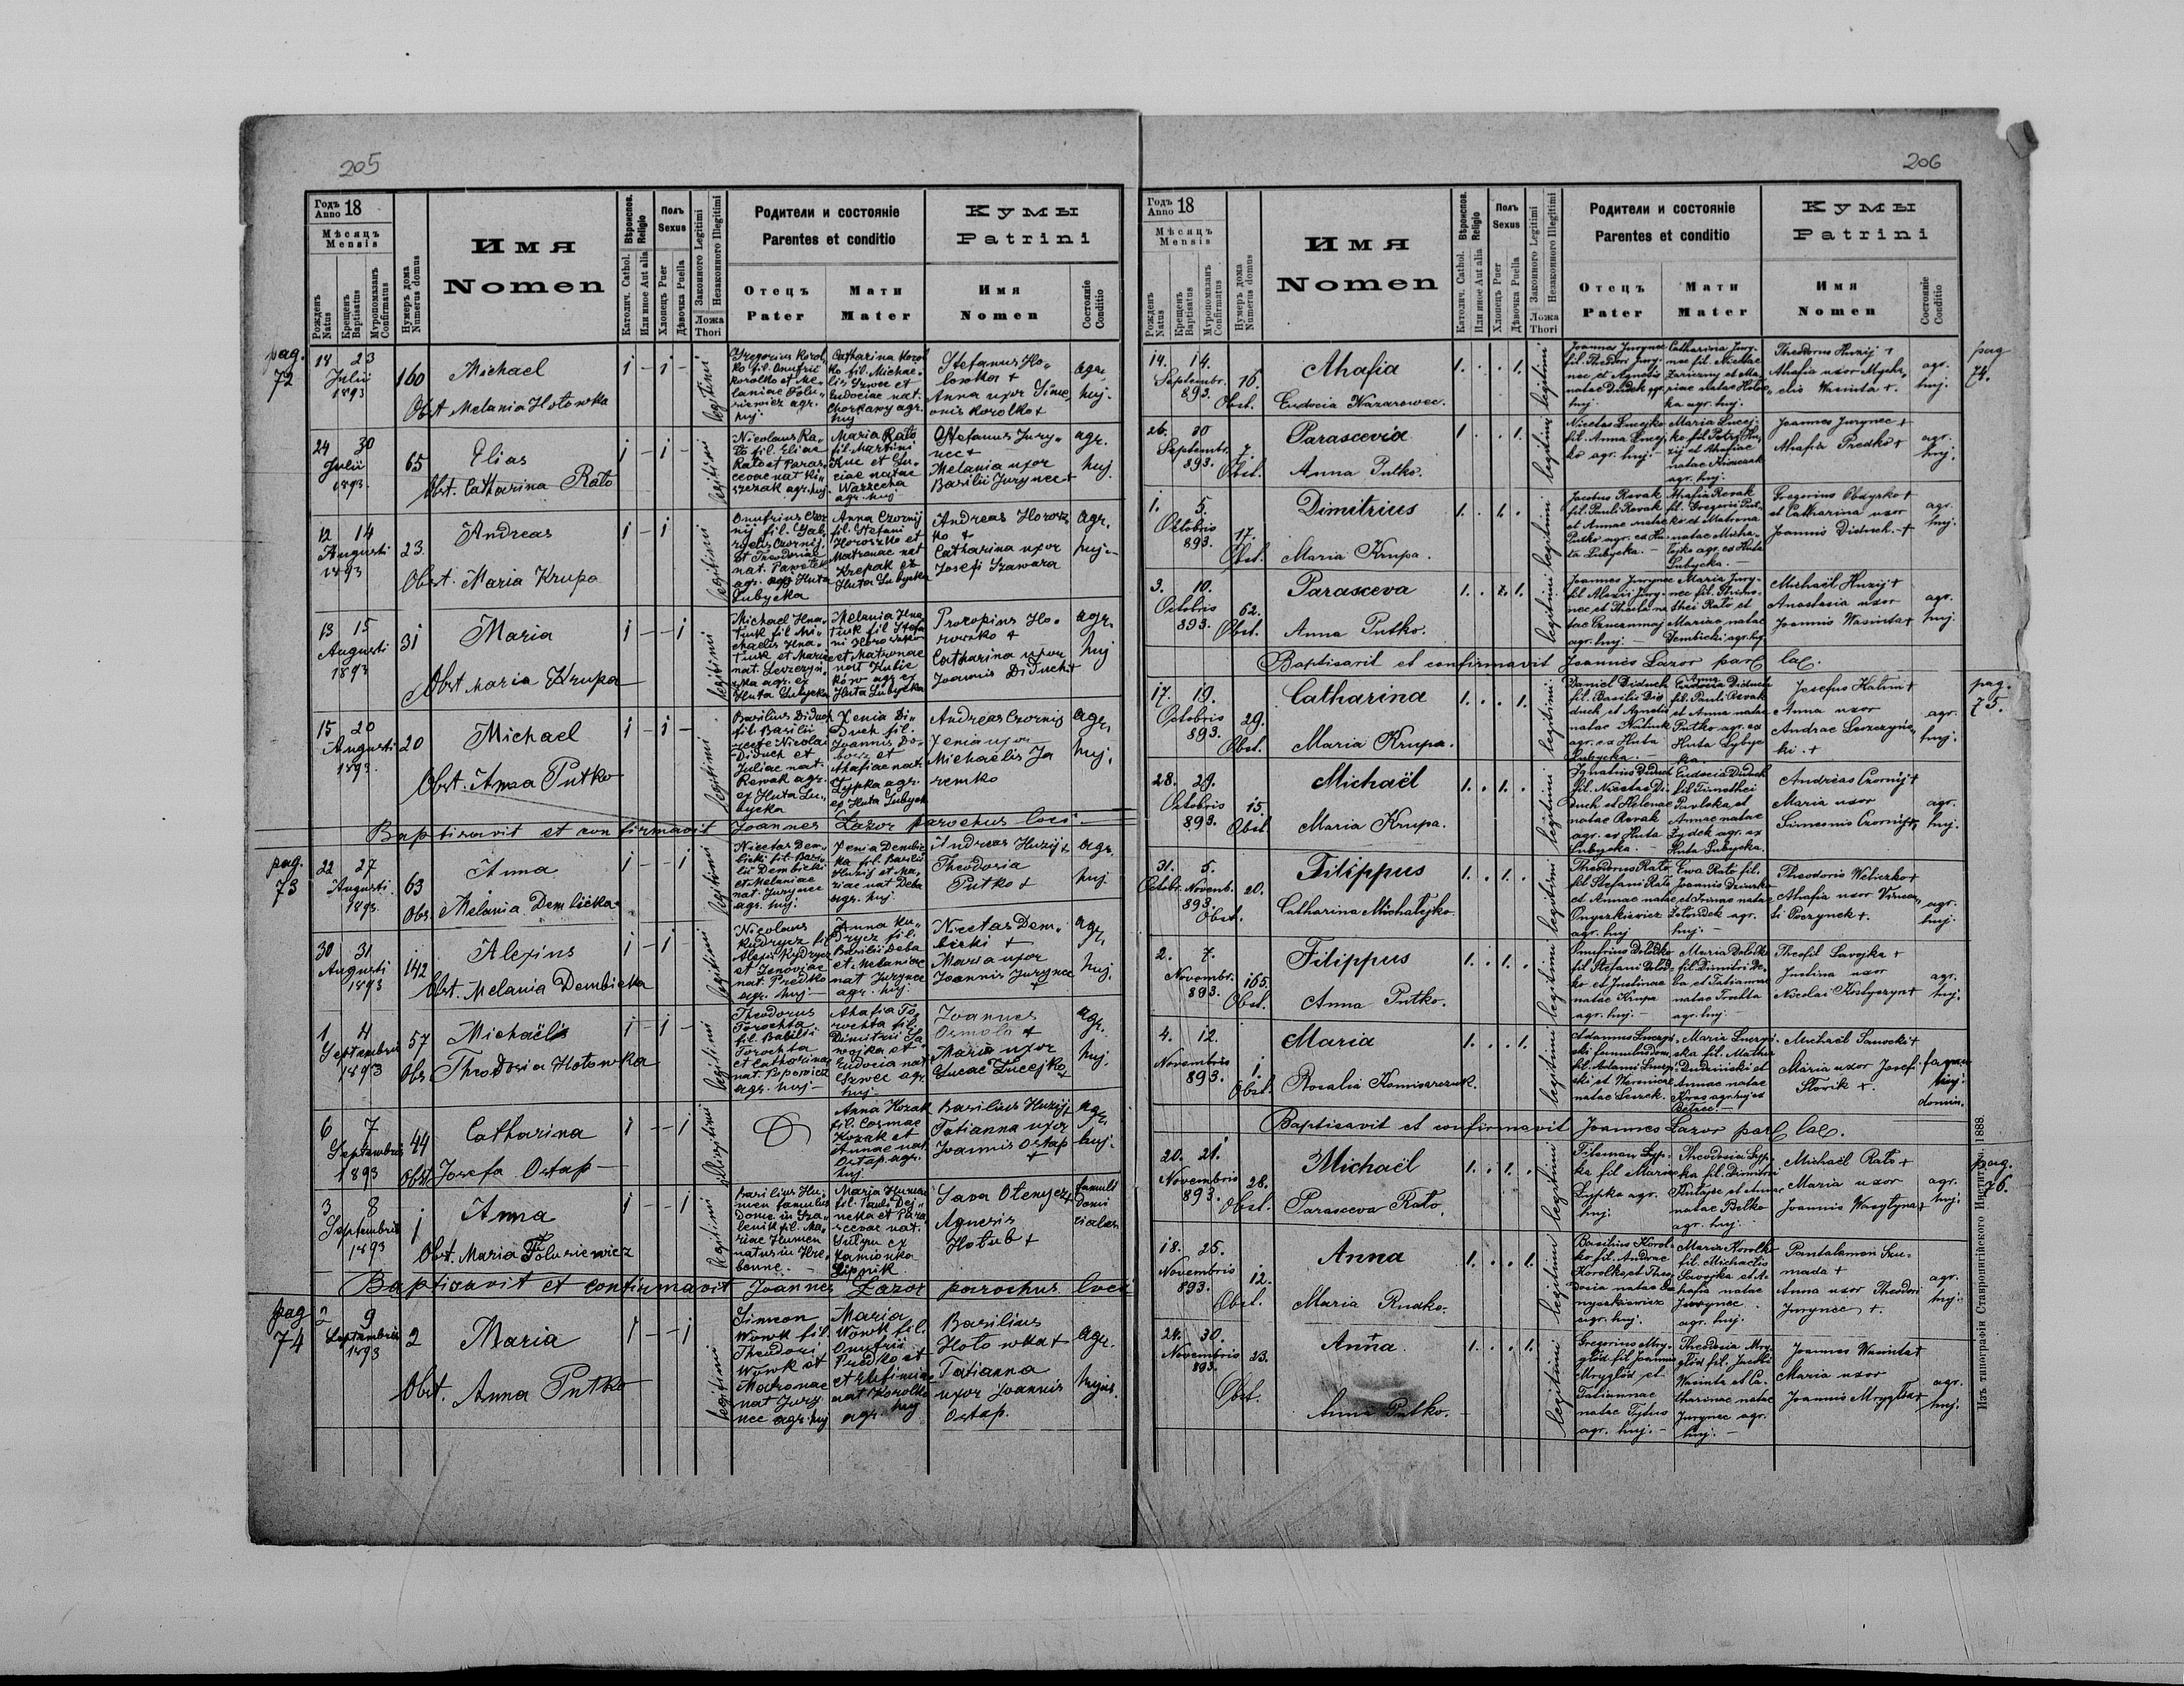 205
Годъ Anno 18
Мѣсяцъ
Mensis
Рожденъ Natus
Крещенъ Baptisatus
Муропомазанъ Confirmatus
Нумеръ дома Numerus domus
Имя
Nomen
Вѣроиспов. Religio
Католич. Cathol.
Или иное Aut alia
Полъ
Sexus
Хлопець Puer
Дѣвочка Puella
Законного Legitimi
Незаконного Illegitimi
Ложа Thori
Родители и состояніе
Parentes et conditio
Отецъ
Pater
Мати
Mater
Кумы
Patrini
Имя
Nomen
Состояніе Conditio
pag. 72
14 23
Julii
1893
160
Michael
Obst Melania Hotowka
1 - 1 -
legitimi
Gregorius Korol
ko fil. Onufrii
Korolko et Me„
laniae Folu„
siewicz agr.
huj
Catharina Korol
ko fil. Michae„
lis Szwec et
Eudociae nat.
agr.
huj
Stefanus Ho„
lowka +
Anna uxor Sime„
onis Korolko +
agr.
huj.
24 30
Julii
1893.
65
Elias
Obst. Catharina Rato
1 - 1 -
legitimi
Nicolaus Ra„
to fil. Eliae
Rato et Paras„
cevae nat Ki„
szczak agr. huj.
Maria Rato
fil. Martini
Kuc et Lu„
ciae natae
Warzecha
agr. huj
Stefanus Jury„
nec +
Melania uxor
Basilii Jurynec +
agr.
huj.
12 14
Augusti
1893
23
Andreas
Obst. Maria Krupa
1 - 1
legitimi
Onufrius Czor
nij fil. Gab„
rielis Czornij
et Theodoriae
nat. Pawelek
agr. Huta
Lubycka
Anna Czornij
fil. Stefani
Horoszko et
Matronae nat
Krepak ex
Huta Lubycka
Andreas Horosz
ko +
Catharina uxor
Josefi Szawara
agr.
huj.
13 15
Augusti
1893
31
Maria
Obst Maria Krupa
1 - - 1
legitimi
Michael Hna„
tiuk fil. Mi„
chaelis Hna„
tiuk et Mariae
nat. Leszczyń„
ska agr. ex
Huta Lubycka
Melania Hna
tiuk fil. Stefa
ni Horoszko
et Matronae
nat Hubic
kow agr. ex
Huta Lubycka
Procopius Ho„
roszko +
Catharina uxor
Joannis Diduch +
agr.
huj
15 20
Augusti
1893.
20
Michael
Obst. Anna Putko
1 - 1 -
legitimi
Basilius Diduch
fil. Basilii
recte Nicolai
Diduch et
Juliae nat.
Rewak agr.
ex Huta Lu„
bycka
Xenia Di„
duch fil.
Joannis Do„
et
Ahafiae nat.
Lypka agr.
ex Huta Lubyck
Andreas Czornij
Xenia uxor
Michaelis Ja
remko
agr.
huj.
Baptisavit et confirmavit Joannes Lazor parochus loci
pag. 73
22 27
Augusti
1893
63
Anna
Obs. Melania Dembicka
1 - - 1
legitimi
Nicetas Dem„
bicki fil. Basi„
lii Dembicki
et Melaniae
nat. Jurynec
agr. huj.
Xenia Dembic
ka fil. Basilii
Huzij et Ma„
riae nat Deba
agr. huj.
Andreas Huzij +
Theodosia
Putko +
agr.
huj.
30 31
Augusti
1893
142
Alexius
Obst. Melania Dembicka
1 - 1 -
legitimi
Nicolaus
Kudrycz fil
Alexii Kydrycz
et Zenoviae
nat. Predko
agr. huj
Anna Ku„
drycz fil.
Basilii Deba
et Melaniae
nat Jurynec
agr. huj
Nicetas Dem„
bicki +
Maria uxor
Joannis Jurynec
+
agr.
huj.
1 4
Septembris
1893
57
Michaëlis
Obs. Theodosia Hotowka
1 - 1 -
legitimi
Theodorus
Torochta
fil. Basilii
Torochta
et Catharinae
nat. Popowicz
agr. huj
Ahafia To„
rochta fil.
Dimitrii Sa
wojka et
Eudocia nat
Szwec agr.
huj
Joannes
Osmola +
Maria uxor
Lucae Lucejko
+
agr.
huj.
6 7
Septembris
1893
44
Catharina
Obst. Josefa Ostap
1 - - 1
illegitimi
Anna Kozak
fil. Cosmae
Kozak et
Annae nat.
Ostap agr.
huj.
Basilius Huzij +
Tatianna uxor
Joannis Ostap
+
agr.
huj.
3 8
Septembris
1893
1
Anna
Obst. Maria Folusiewicz
1 - - 1
legitimi
Basilius Hu„
men famulus
Dom. in Sza„
lenik fil. Ma„
riae Humen
natus in Hre„
benne.
Maria Humen
fil. Pauli Dej„
neka et Para
scevae nat.
ex
Kamionka
Lipnik
Sava Otenycz +
Agnesis
Holub +
famuli
Domi
niales
Baptisavit et confirmavit Joannes Lazor parochus loci
pag 74
2 9
Septembris
1893
2
Maria
Obst. Anna Putko
1 - - 1
legitimi
Simeon
Wowk fil.
Theodori
Wowk et
Matronae
nat Jury
nec agr. huj
Maria
Wowk fil.
Onufrii
Predko et
et Eufimiae
nat Korolko
agr. huj
Basilius
Hotowka +
Tatianna
uxor Joannis
Ostap.
agr.
hujus.
206
Годъ Anno 18
Мѣсяцъ
Mensis
Рожденъ Natus
Крещенъ Baptisatus
Муропомазанъ Confirmatus
Нумеръ дома Numerus domus
Имя
Nomen
Вѣроиспов. Religio
Католич. Cathol.
Или иное Aut alia
Полъ
Sexus
Хлопець Puer
Дѣвочка Puella
Законного Legitimi
Незаконного Illegitimi
Ложа Thori
Родители и состояніе
Parentes et conditio
Отецъ
Pater
Мати
Mater
Кумы
Patrini
Имя
Nomen
Состояніе Conditio
pag 74.
14. 14.
Septembr.
893.
76.
Ahafia
Obst. Eudocia Nazarowec.
1. . . 1.
legitimi
Joannes Jurynec
fil. Theodori Jury„
nec et Agnetis
natae Dudek agr.
huj.
Catharina Jury„
nec fil. Nicetae
et Ma„
riae natae Hotow„
ka agr. huj.
Theodorus Huzij +
Ahafia uxor Mycha„
elis Wasiuta +.
agr.
huj.
26. 30
Septembr.
893.
7.
Parascevia
Obst. Anna Putko.
1. . . 1.
legitimi
Nicolas Lucejko
fil. Anna Lucej„
ko agr. huj.
Maria Lucej„
ko fil. Petri Hu„
zij et Ahafiae
natae
agr. huj.
Joannes Jurynec +
Ahafia Predko +
agr.
huj.
1. 5.
Octobris
893.
17.
Dimitrius
Obst. Maria Krupa.
1. . 1. .
legitimi
Jacobus Rewak
fil. Pauli Rewak
et Annae natae
Putko agr. ex Hu„
ta Lubycka.
Ahafia Rewak
fil. Gregorii
ko et Matrona
natae Micha„
lejko agr. ex Huta
Lubycka.
Gregorius +
et Catharina uxor
Joannis Diduch. +
agr.
huj.
3. 10.
Octobris
893.
62.
Parasceva
Obst. Anna Putko.
1. . 1.
legitimi
Joannes Jurynec
fil. Alexii Jury„
nec et
agr. huj.
Maria Jury„
nec fil. Timo„
thei Rato et
Mariae natae
Dembicki agr. huj
Michaël Huzij +
Anastasia uxor
Joannis Wasiuta +
agr.
huj.
Baptisavit et confirmavit Joannes Lazor par. loc.
pag. 75.
17. 19.
Octobris
893.
29.
Catharina
Obst. Maria Krupa.
1. . . 1.
legitimi
Daniel Diduch
fil. Basilii Did
duch, et Agnetis
natae
agr. ex Huta
Lubycka.
Anna
Eudocia Diduch
fil. Pauli Rewak
et Anna natae
Putko agr. ex
Huta Lubyc
ka.
Josefus +
Anna uxor
Andrae Leszczyns„
ki. +
agr.
huj.
28. 29.
Octobris
893.
15
Michaël
Obst. Maria Krupa.
1. . 1. .
legitimi
Ignatius Diduch
fil. Nicetae Di„
duch et Helenae
natae Rewak
agr. ex Huta
Lubycka.
Eudocia Diduch
fil. Timothei
Pawluka et
Annae natae
Zydek agr. ex
Huta Lubycka.
Andreas Czornij +
Maria uxor
Simeonis Czornij +
agr.
huj.
31. 5.
Octobr. Novemb.
893.
20.
Filippus
Obst. Catharina Michalejko.
1. . 1. .
legitimi
Theodorus Rato
fil Stefani Rato
et Annae natae
Onyszkiewicz
agr. huj
Ewa Rato fil.
Joannis
et Annae natae
agr.
huj.
Theodoris Weliczko +
Ahafia uxor
Poczynek +.
agr.
huj.
2. 7.
Novembr.
893.
165.
Filippus
Obst. Anna Putko.
1. . 1. .
legitimi
Onufrius Dolotko
fil Stefani Dolot„
ko et Justinae
natae Krupa
agr. huj.
Maria Dolotko
fil. Dimitri De„
ba et Tatiannae
natae Trochta
agr. huj.
Theofil Sawojka +
Justina uxor
Nicolai Kostyczyn +
agr.
huj.
4. 12.
Novembris
893.
1.
Maria
Obst. Rosalia Komisarczuk.
1. . . 1.
legitimi
Adamus
ski famulus dom.
fil. Adami
ski et Weronicae
natae Leszek.
Maria
ska fil. Mathei
Dudzinski et
Annae natae
agr. huj ex
Belzec.
Michaël Sanocki +
Maria uxor Josefi
Slovik +.
huj.
domin.
Baptisavit et confirmavit Joannes Lazor par. loc.
pag. 76.
20. 21.
Novembris
893.
28.
Michaël
Obst. Parasceva Rato
1. . 1. .
legitimi
Filemon Lyp„
ka fil Mariae
Lypka agr.
huj.
Theodosia Lyp„
ka fil. Dimitrii
et Annae
natae Belko
agr. huj.
Michaël Rato +
Maria uxor
Joannis Wasylyna +
agr.
huj.
18. 25.
Novembris
893.
12.
Anna
Obst. Maria Rudko.
1. . . 1.
legitimi
Basilius Korol„
ko fil. Andreae
Korolko et Theo„
dosia natae O„
nyszkiewicz
agr. huj.
Maria Korolko
fil. Michaelis
Sawojka et A„
hafia natae
Jurynec
agr. huj.
Pantalemon Szu„
mada +
Anna uxor Theodori
Jurynec +.
agr.
huj.
24. 30.
Novembris
893.
23.
Anna
Obst. Anna Putko.
1. . . 1.
legitimi
Gregorius Mry„
glod fil Joannis
Mryglod et
Tatiannae
natae Tytus
agr. huj.
Theodosia Mry„
glod fil. Jacobi
Wasiuta et Ca„
tharinae natae
Jurynec agr.
huj.
Joannes Wasiuta +
Maria uxor
Joannis Mryglod +
agr.
huj.
Изъ типографіи Ставропигійского Института. 1888.